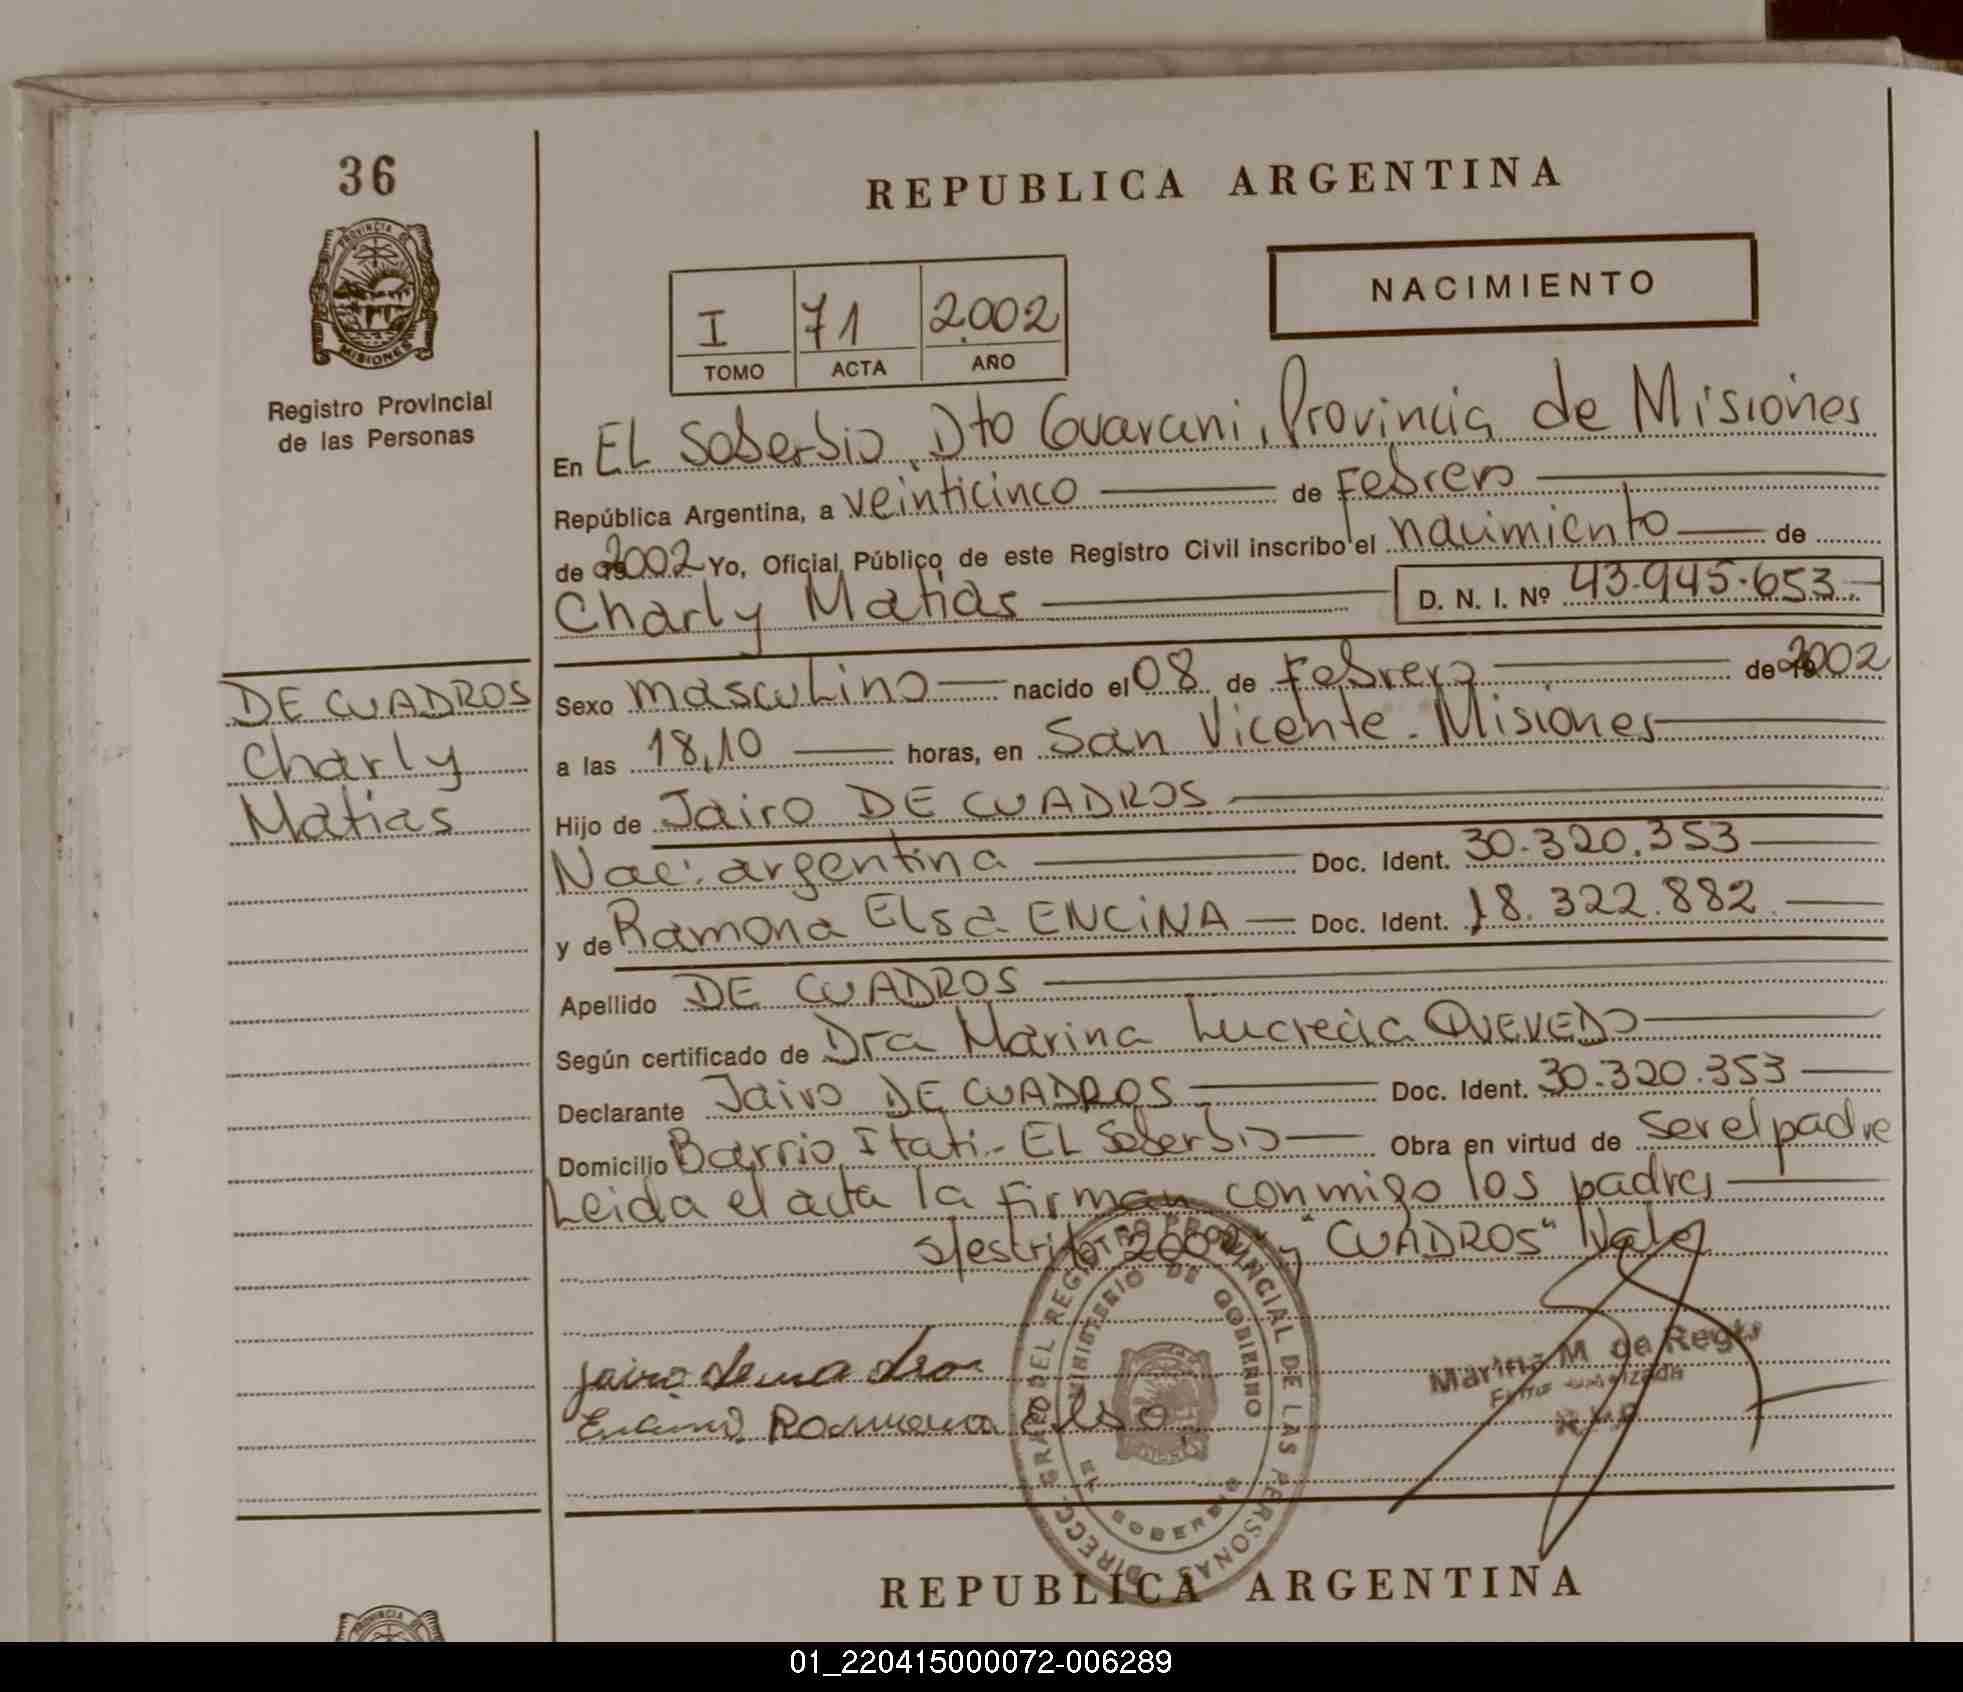 36
REPUBLICA ARGENTINA
PROVINCIA DE
MISIONES
Registro Provincial
de las Personas
NACIMIENTO
I 71 2.002
TOMO ACTA AÑO
En EL Soberbio, Dto Guarani, Provincia de Misiones
República Argentina, a veinticinco de Febrero
de 2002 Yo, Oficial Público de este Registro Civil inscribo el nacimiento de
Charly Matias D. N. I. Nº 43.945.653.
DE CUADROS
Charly
Matias
Sexo masculino nacido el 08 de Febrero de 2002
a las 18,10 horas, en San Vicente - Misiones
Hijo de Jairo DE CUADROS
Nac: argentina Doc. Ident. 30.320.353
y de Ramona Elsa ENCINA Doc. Ident. 18.322.882
Apellido DE CUADROS
Según certificado de Dra Marina Lucrecia QUEVEDO
Declarante Jairo DE CUADROS Doc. Ident. 30.320.353
Domicilio Barrio Itati - EL Soberbio Obra en virtud de ser el padre
Leida el acta la firman conmigo los padres
s/escrito 2002 y "CUADROS" Vale
Jairo
Ramona Elsa
Marina M de
R.P.P
DIRECC. GRAL. DEL REGISTRO PROVINCIAL DE LAS PERSONAS
MINISTERIO DE GOBIERNO
EL SOBERBIO
REPUBLICA ARGENTINA
PROVINCIA DE
01_220415000072-006289